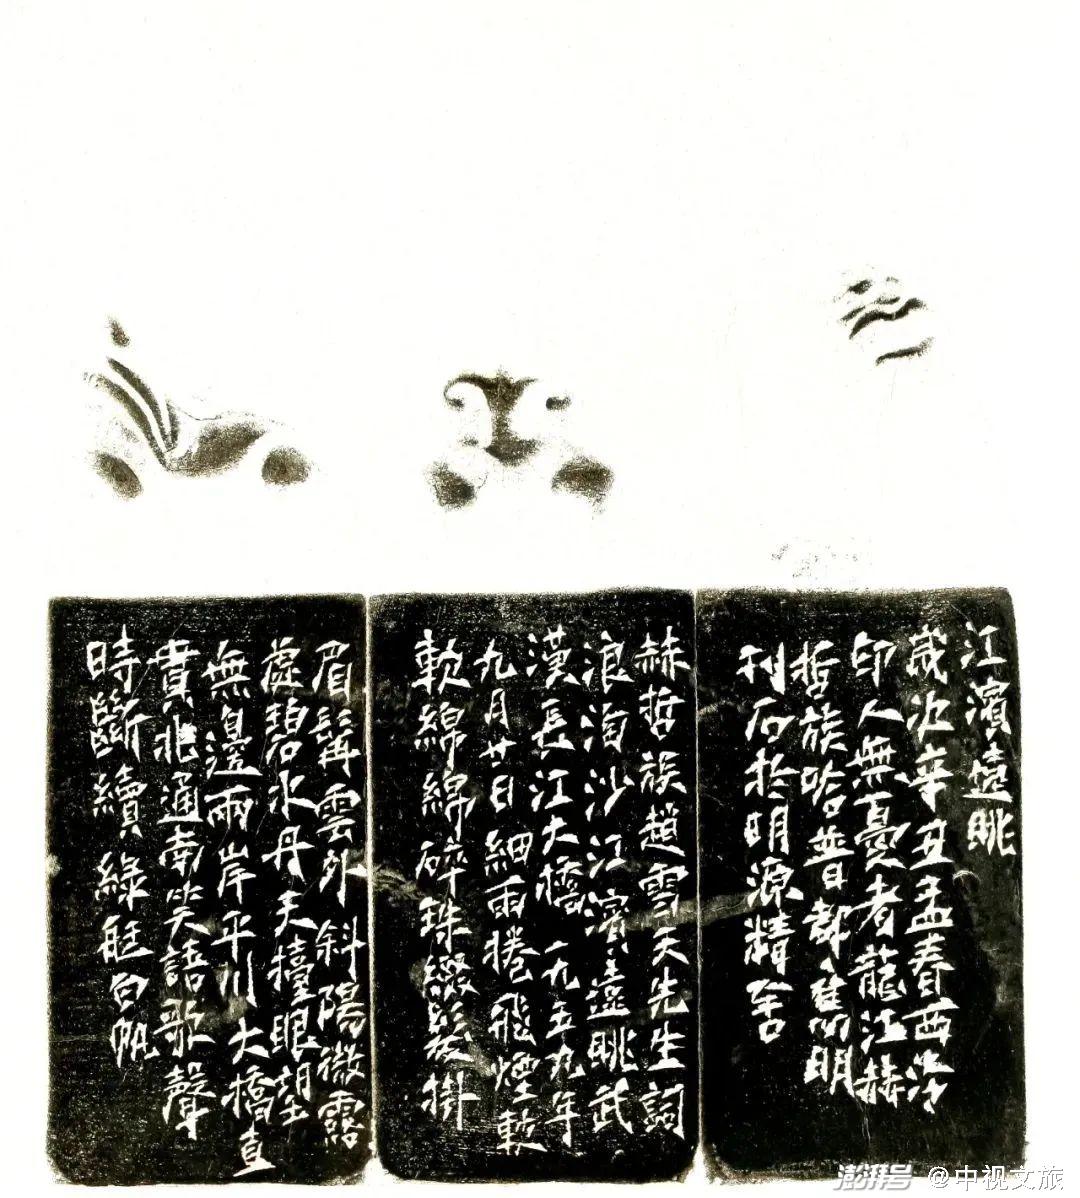 江濱遠眺
歲次辛丑孟春西泠
印人無憂者龍江赫
哲族哈普都隽明
刊石於明源精舍
赫哲族趙雪天先生詞
浪淘沙江濱遠眺武
漢長江大橋一九五九年
九月廿日細雨捲飛煙軟
軟綿綿碎珠綴髮掛
眉髯雲外斜陽微露
處碧水丹天擡眼望
無邊兩岸平川大橋直
貫北通南笑語歌聲
時斷續綠艇白帆
澎湃号 @中视文旅